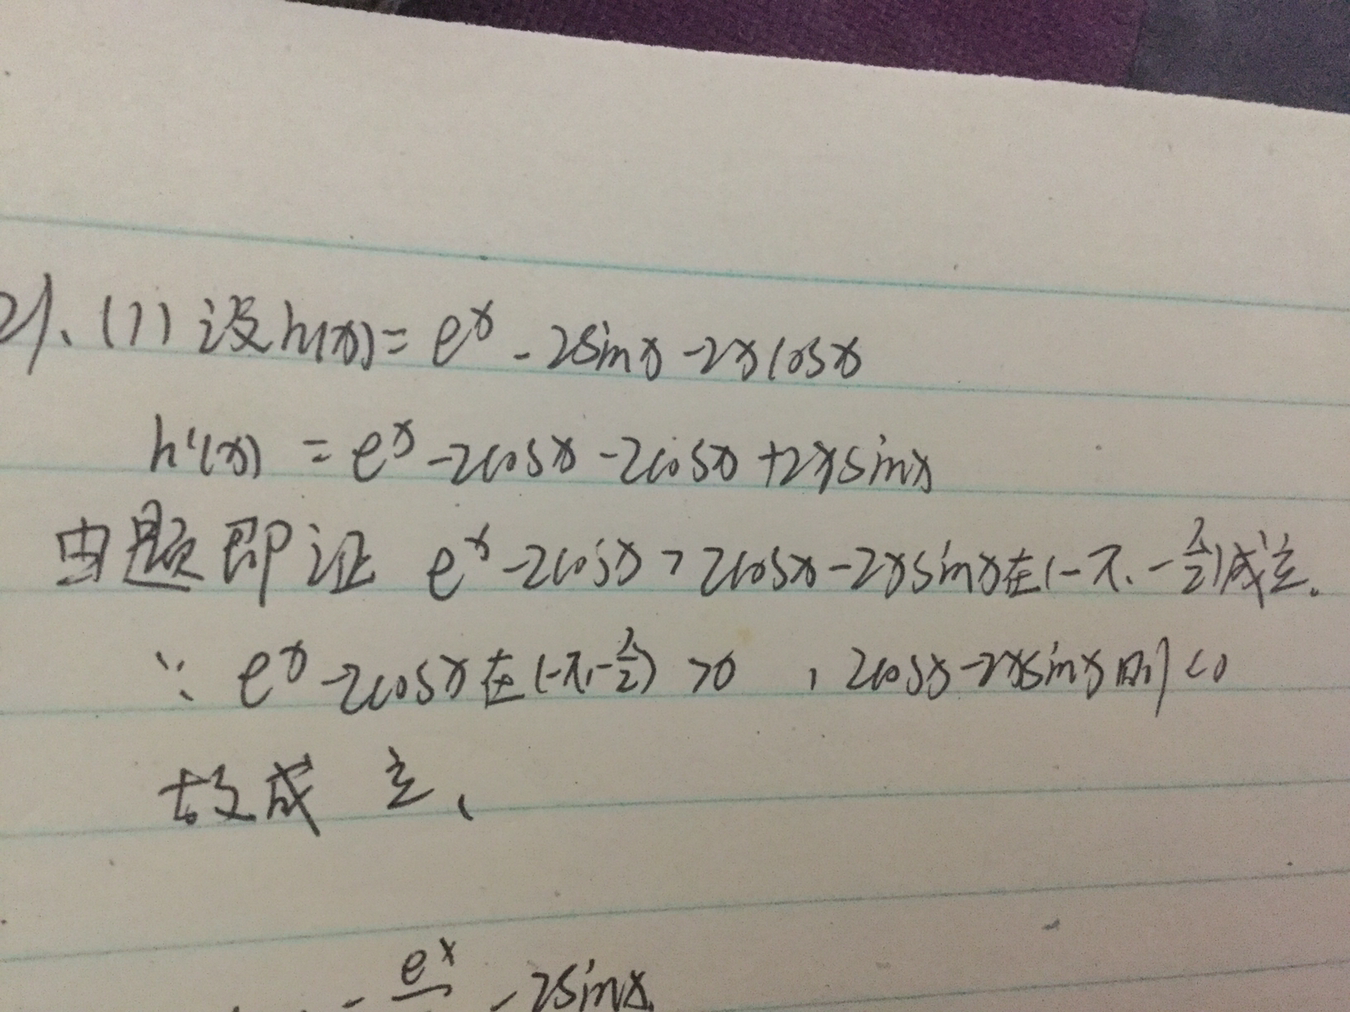 21、(1) 设h(x)= e^x - 2sinx -2xcosx
h'(x) = e^x -2cosx -2cosx +2xsinx
由题即证 e^x -2cosx > 2cosx -2xsinx在(-π, -π/2)成立。
∵ e^x -2cosx在(-π,-π/2) >0 , 2cosx -2xsinx则<0
故成立、
e^x -2sinx